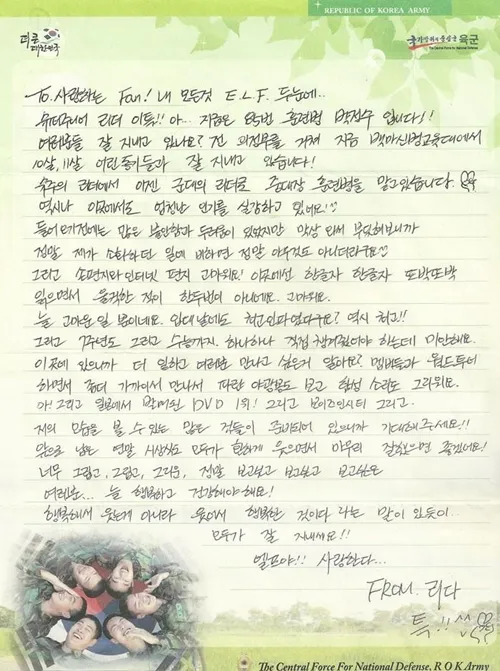 REPUBLIC OF KOREA ARMY
대한민국
육군
The Central Force for National Defense
To. 사랑하는 Fan! 내 모든것 E.L.F. 두눈에...
슈퍼주니어 리더 이특!! 아... 지금은 훈련병 박정수 입니다!!
여러분들 잘 지내고 있나요? 전 의정부를 거쳐 지금 백마신병교육대에서
10살, 11살 어린 동이들과 잘 지내고 있습니다!
슈주의 리더에서 이젠 군대의 리더로 중대장 훈련병을 맡고있습니다.
역시나 이곳에서도 엄청난 인기를 실감하고 있네요!
들어오기전에는 많은 불안함과 두려움이 있었지만 막상 와서 부딪혀보니까
정말 제가 소화하던 일에 비하면 정말 아무것도 아니더라구요
그리고 손편지와 인터넷 편지 고마워요! 이곳에선 한글자 한글자 또박또박
읽으면서 울컥한 적이 한두번이 아니에요. 고마워요.
늘 고마운 일 뿐이네요. 인기날에도 최고였다면서요? 역시 최고!!
그리고 7주년도 그리고 수능까지. 하나하나 직접 챙겨줬어야 하는데 미안해요.
이곳에 있으니까 더 일하고 여러분 만나고 싶은거 알아요? 멤버들과 월드투어
하면서 좀더 가까이서 만나서 파란 야광봉도 보고 함성 소리도 그리워요.
아! 그리고 일본에서 발매된 DVD 1위! 그리고 보이즈인시티 그리고.
저의 모습을 볼 수 있는 많은 것들이 준비되어 있으니까 기대해주세요!!
앞으로 남은 연말 시상식도 모두가 환하게 웃으면서 마무리 잘했으면 좋겠네요!
너무 그립고, 그립고, 그리운, 정말 보고싶고 보고싶고 보고싶은
여러분... 늘 행복하고 건강해야해요!
행복해서 웃는게 아니라 웃어서 행복한 것이다 라는 말이 있듯이...
모두가 잘 지내세요!!
엘프야!! 사랑한다...
FROM. 리다
특!!
The Central Force For National Defense, R O K Army